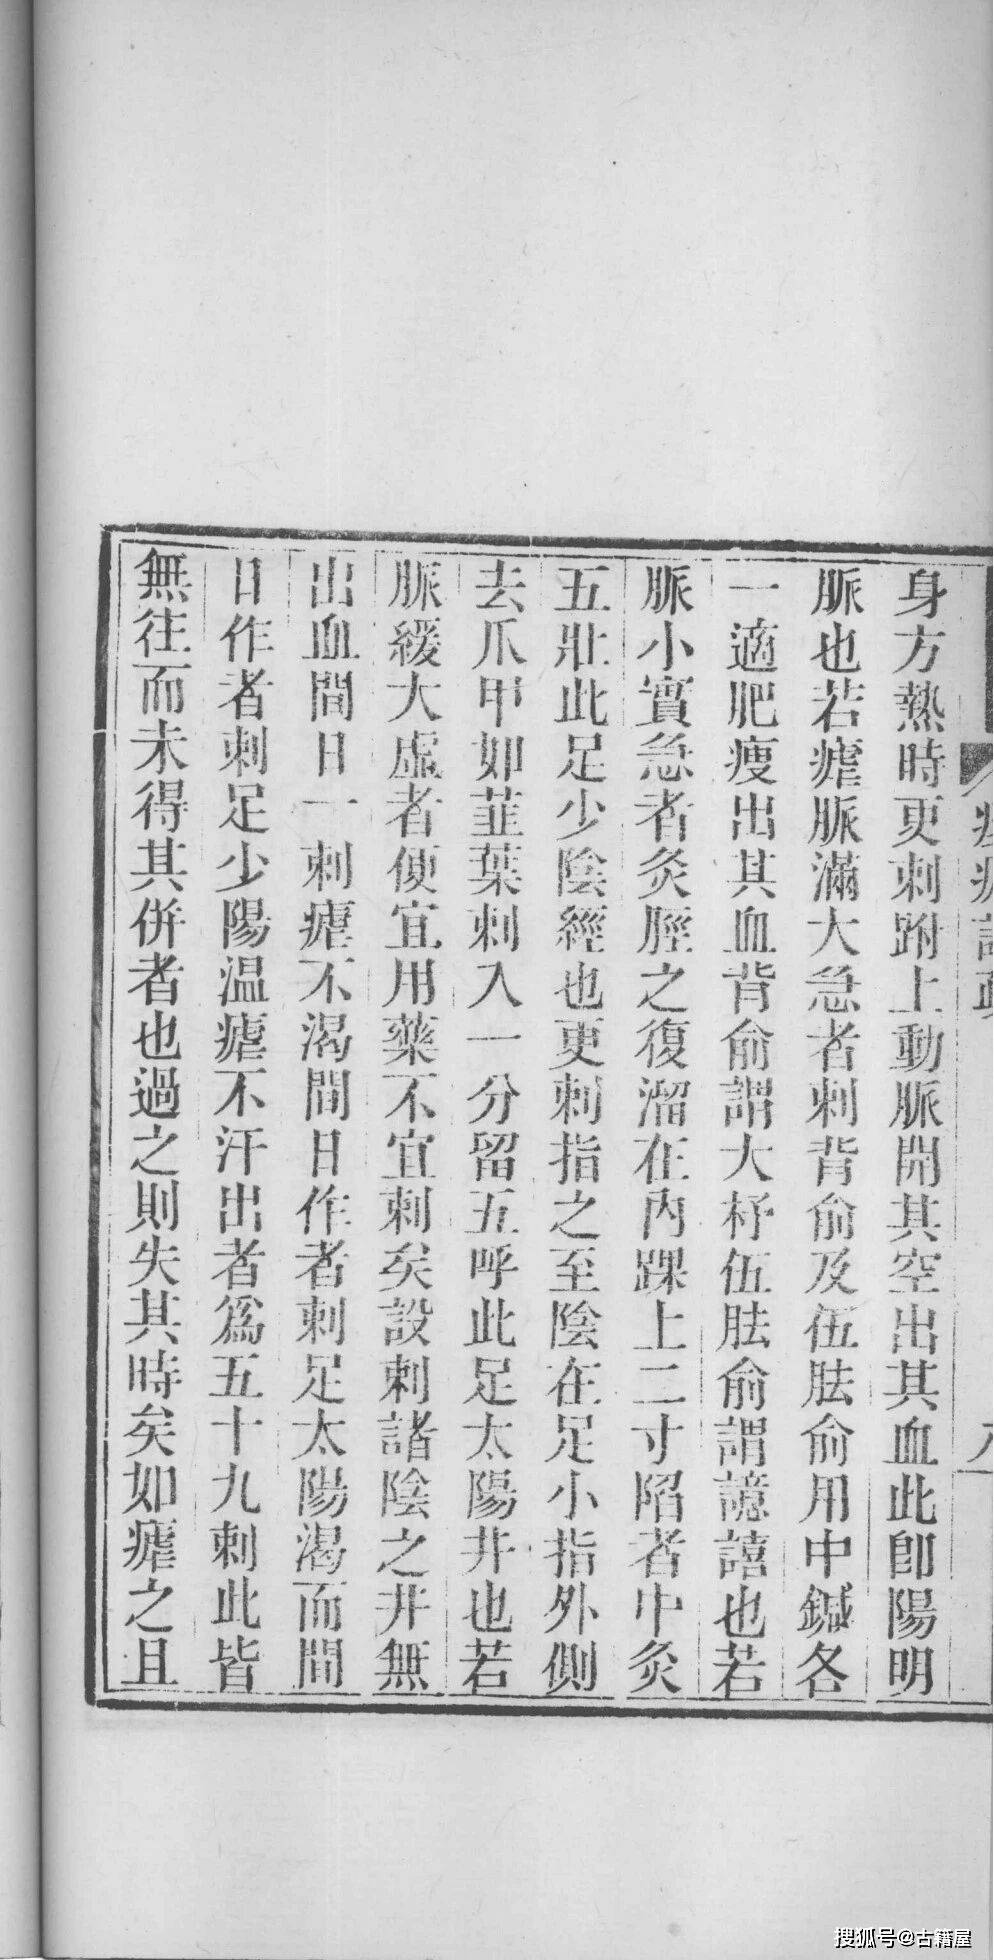 身方熱時更刺跗上動脈開其空出其血此卽陽明
脈也若瘧脈滿大急者刺背俞及伍胠俞用中鍼各
一適肥瘦出其血背俞謂大杼伍胠俞謂譩譆也若
脈小實急者灸脛之復溜在內踝上二寸陷者中灸
五壯此足少陰經也更刺指之至陰在足小指外側
去爪甲如韮葉刺入一分留五呼此足太陽井也若
脈緩大虛者便宜用藥不宜刺矣設刺諸陰之井無
出血間日一刺瘧不渴間日作者刺足太陽渴而間
日作者刺足少陽温瘧不汗出者爲五十九刺此皆
無往而未得其併者也過之則失其時矣如瘧之且
搜狐号@古籍屋